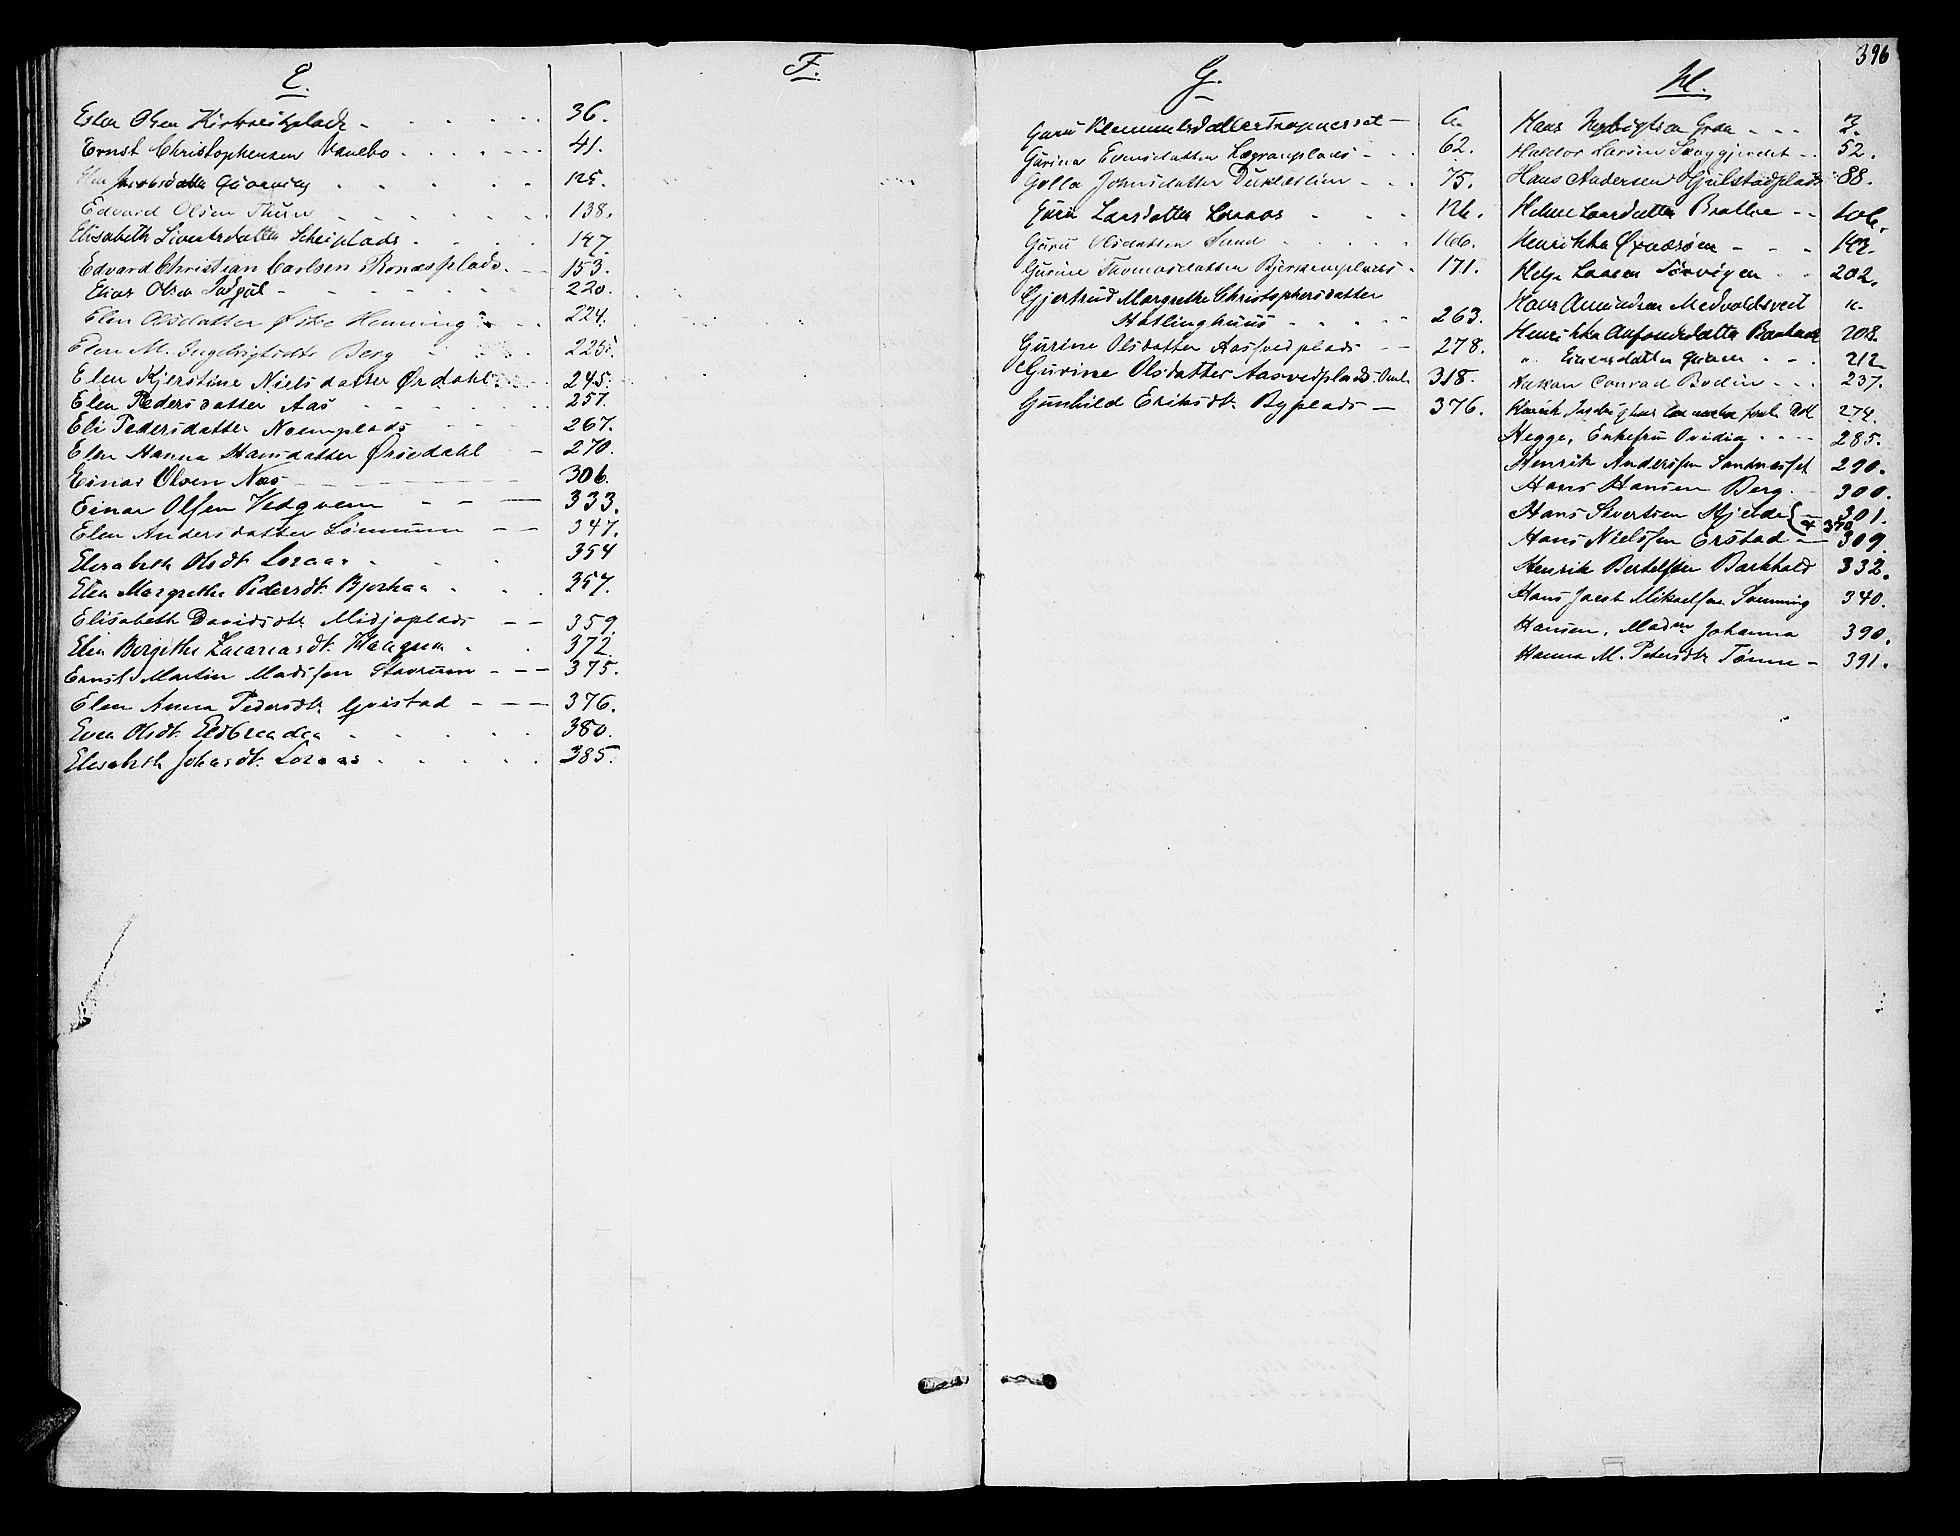 E.
Esten Olsen Kirknesplads 36.
Ernst Christophersen Vanebo 41.
Jacobsdatter 125.
Edvard Olsen Thun 138.
Elisabeth Sivertsdatter Scheiplads 147.
Edvard Christian Carlsen Ronæsplads. 153.
Elias Olsen 220.
Elen Olsdatter Østre Henning 224.
Elen M. Ingebrigtsdtr Berg 225.
Elen Kjerstine Nielsdatter Ørdahl 245.
Elen Pedersdatter Aas 257.
Eli Pedersdatter Naemplads 267.
Elen Hanna Hansdatter Ørsedahl 270.
Einar Olsen Næs 306.
Einar Olsen Vedqvern 333.
Elen Andersdatter Lømmum 347.
Elisabeth Olsdt. Loraas 354
Elen Margrethe Pedersdt. Bjørkaa 357.
Elisabeth Davidsdtr. Midjoplads 359.
Elen Bergitte Zacariasdt. 372.
Ernst Martin Madssen Stavrum 375.
Elen Anna Pedersdt. Qvistad 376.
Even Olsdt. 380.
Elisabeth Johasdt. Loraas 385.
F.
G.
Guru Klemmetsdatter Trapnesset 6.
Gurina Evensdatter 62.
Golla Johnsdatter 75.
Guru Larsdatter Loraas 126.
Guru Olsdatter Sund 166.
Gurine Thomasdatter Bjerkemplads 171.
Gjertrud Margrethe Christophersdatter
Hallinghuus 263.
Gurine Olsdatter Aasvedplads 278.
Gurine Olsdatter Aasvedplads Oml. 318.
Gunhild Eriksdt. Byplads 376.
396
H.
Hans Ingbrigtsen Gran 3.
Haldor Larsen 52.
Hans Andersen Gjulstadplads 88.
Helene Larsdatter Brathe 106.
Henrikka 142.
Helge Laasen Sørvigen 202.
Hans Amundsen Medvoldsveet "
Henrikka 208.
" Einersdatter 212.
Håkon Conrad Bodin 237.
274.
Hegge, Enkefru Ovidia 285.
Henrik Anderssen Sandnesset 290.
Hans Hansen Berg 300.
Hans Sivertsen Hjelde 301.
(& 370
Hans Nielssen Erstad 309.
Henrik Bertelssen Barkhald 332.
Hans Jacob Mikaelssen Svenning 340.
Hansen, Madm Johanna 390.
Hanna M. Petersdtr Tønne 391.